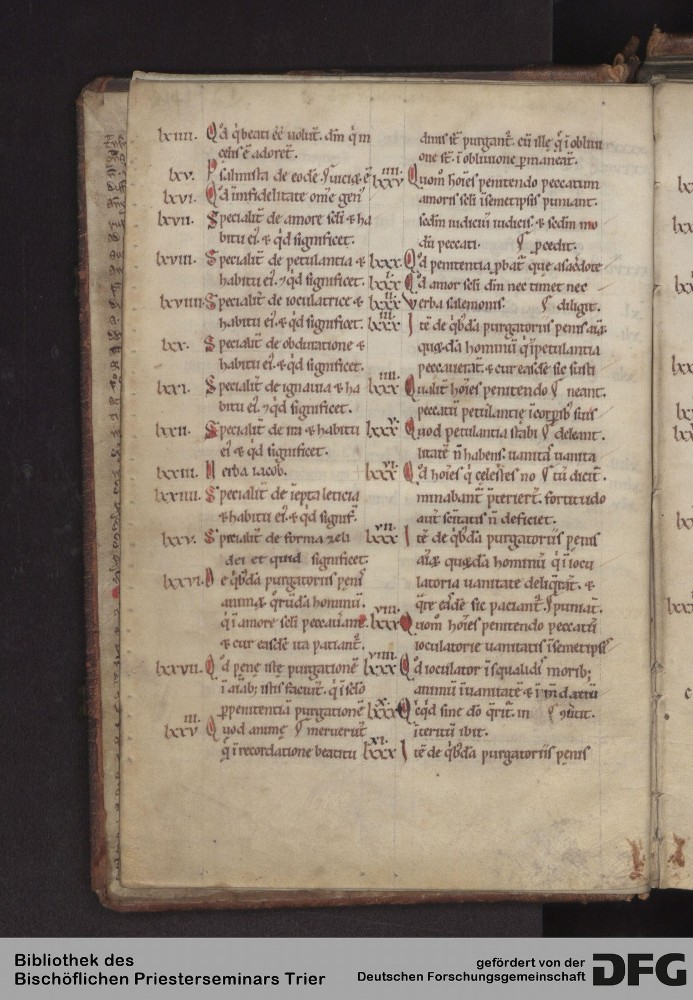 lxiiii. Qđ q̇ beati eē uolūt. dm̄ q̇ in
celis ē adoret.
lxv. Psalmista de eodē.
lxvi. Qđ infidelitate om̄e gen
lxvii. Specialit̄ de amore scłi ⁊ ha
bitu eí. ⁊ qd̄ significet.
lxviii. Specialit̄ de petulantia ⁊
habitu eí. ⁊ qd̄ significet.
lxviiii. Specialit̄ de ioculatrice ⁊
habitu eí. ⁊ qd̄ significet.
lxx. Specialit̄ de obduratione ⁊
habitu eí. ⁊ qd̄ significet.
lxxi. Specialit̄ de ignauia ⁊ ha
bitu eí. ⁊ qd̄ significet.
lxxii. Specialit̄ de ira ⁊ habitu
eí ⁊ qd̄ significet.
lxxiii. Uerba iacob.
lxxiiii. Specialit̄ de īepta leticia
⁊ habitu eí. ⁊ qd̄ signif̄.
lxxv. Specialit̄ de forma zeli
dei et quid significet.
lxxvi. De q̇bđa purgatoriis penis
animaꝝ qͦrūdā hominū.
q̇ ī amore scłi peccauerant.
⁊ cur easdē ita patiant̄.
lxxvii. Qđ pene iste purgationē
ī aīab; istis faciūt. q̇ ī scło
p penitentia purgationē
lxxviii. Quod anime meruerūt
q̇ ī recordatione beatitu
dinis st̄ purgant̄. cū ille q̇ ī obliui
one st̄. ī obliuione ꝑmaneāt.
lxxviiii. Quom̄ hoīes penitendo peccatum
amoris scłi īsemetipsis puniant.
scđm iudiciū iudicis. ⁊ scđm mo
dū peccati. ꝓcedit.
lxxx. Qđ penitentia ꝓbat̄ que a sacđote
lxxxi. Qđ amor scłi dm̄ nec timet nec
lxxxii. Verba salemonis. diligit.
lxxxiii. Itē de q̇bđa purgatoriis penis aīaꝝ
quaꝝdā hominū q̇ ī petulantia
peccauerāt. ⁊ cur easdē sic susti
lxxxiiii. Qualit̄ hoīes penitendo neant.
peccatū petulantię ī corpib; suis
lxxxv. Quod petulantia stabi deleant.
litatē n̄ habens. uanitas uanita
lxxxvi. Qđ hoīes q̇ celestes no tū dicit̄.
minabant̄ p̄terierūt. fortitudo
aut̄ scītatis n̄ deficiet.
lxxxvii. Itē de q̇bđa purgatoriis penis
aīaꝝ quaꝝdā hominū q̇ ī iocu
latoria uanitate deliq̄rāt. ⁊
q̄re easdē sic paciant̄.
lxxxviii. Quom̄ hoīes penitendo peccatū
ioculatorie uanitatis īsemetipsis
lxxxviiii. Qđ ioculator ī squalidis morib;
animū ī uanitatē
lxxxx. Qeqd sine do q̄rit̄. in
īteritū ibit.
lxxxxi. Itē de q̇bđa purgatoriis penis
Bibliothek des
Bischöflichen Priesterseminars Trier
gefördert von der
Deutschen Forschungsgemeinschaft
DFG